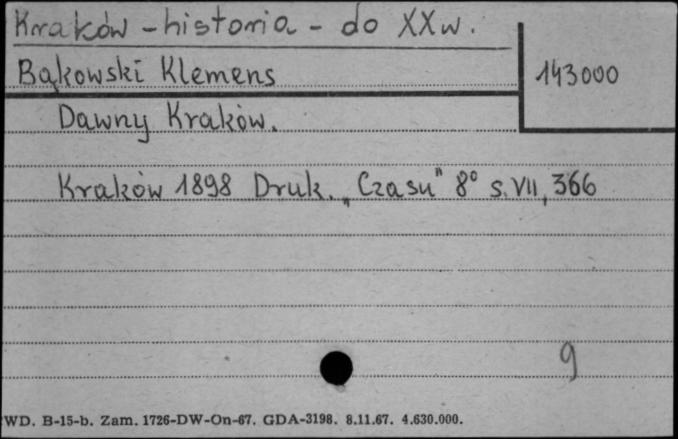 Kraków - historia - do XX w.
Bąkowski Klemens
143000
Dawny Kraków.
Kraków 1898 Druk. „Czasu" 8° s. VII, 366
9
WD. B-15-b. Zam. 1726-DW-On-67. GDA-3198. 8.11.67. 4.630.000.